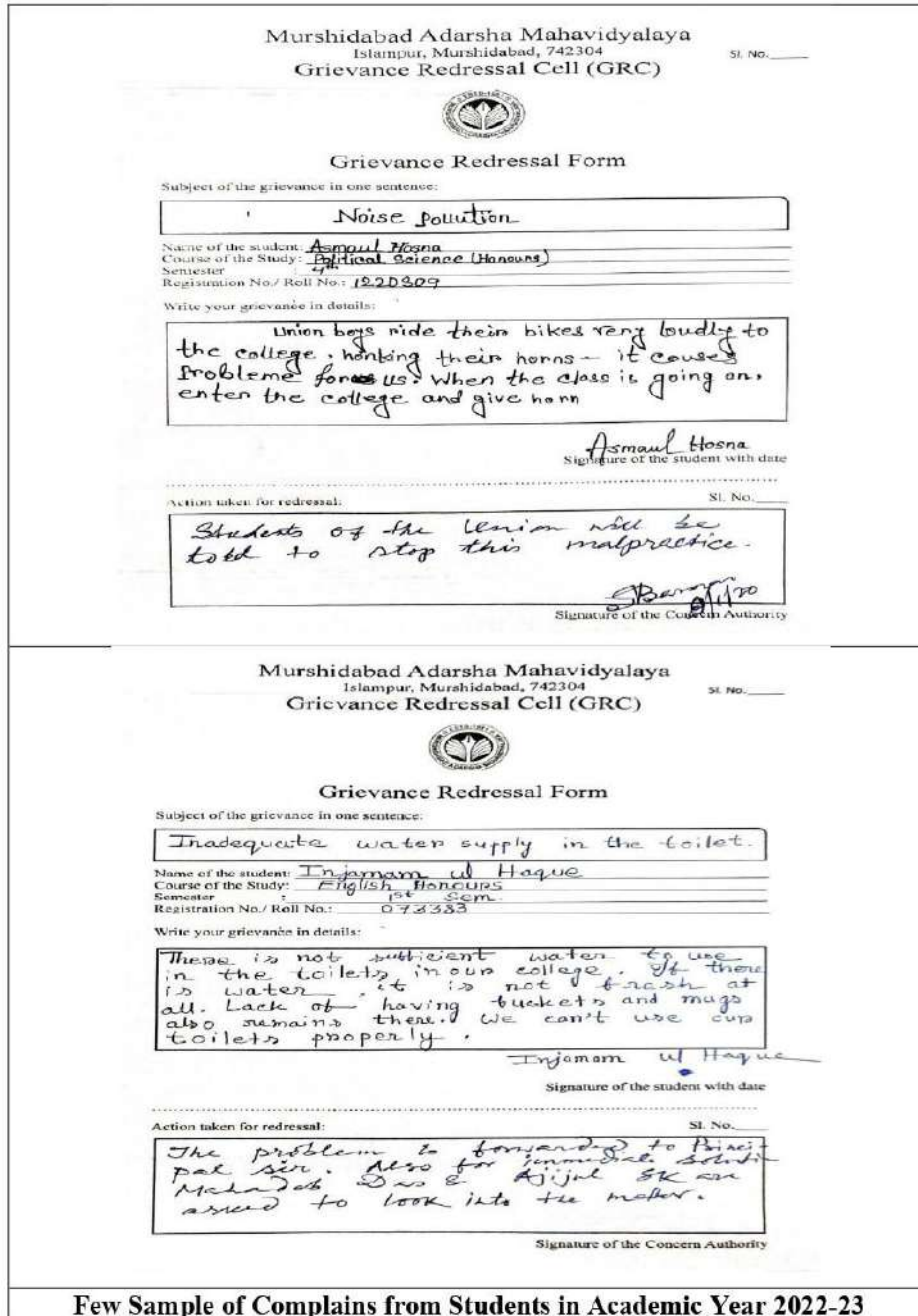 Murshidabad Adarsha Mahavidyalaya
Islampur, Murshidabad, 742304
Sl. No.
Grievance Redressal Cell (GRC)
Grievance Redressal Form
Subject of the grievance in one sentence:
Noise pollution
Name of the student: Asmaul Hosna
Course of the Study: Political Science (Honours)
Semester : 4th
Registration No./ Roll No.:
Write your grievance in details:
Union boys ride their bikes very loudly to
the college, honking their horns - it couses
Probleme for us. When the class is going on,
enter the college and give horn
Asmaul Hosna
Signature of the student with date
Action taken for redressal:
Sl. No.
Students of the Union will be
told to stop this malpractice.
Signature of the Concern Authority
Murshidabad Adarsha Mahavidyalaya
Islampur, Murshidabad, 742304
Sl. No.
Grievance Redressal Cell (GRC)
Grievance Redressal Form
Subject of the grievance in one sentence:
Inadequate water supply in the toilet.
Name of the student: Injamam ul Haque
Course of the Study: English Honours
Semester : 1st Sem.
Registration No./ Roll No.: 073383
Write your grievance in details:
There is not sufficient water to use
in the toilets in our college. If there
is water, it is not frash at
all. Lack of having buckets and mugs
also remains there. We can't use our
toilets properly.
Injamam ul Haque
Signature of the student with date
Action taken for redressal:
Sl. No.
The problem is forwarded to Princi-
pal sir. Also for
Mahadeb Das & Ajijul SK are
asked to look into the matter.
Signature of the Concern Authority
Few Sample of Complains from Students in Academic Year 2022-23